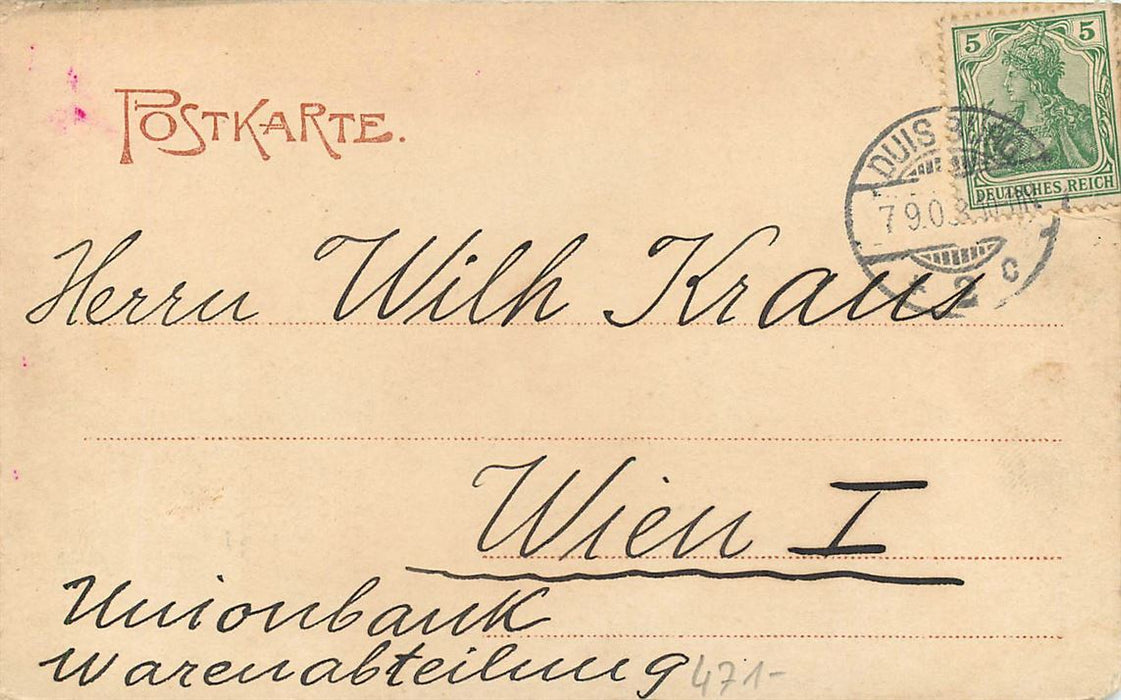 5 5
DEUTSCHES REICH
POSTKARTE.
DUISBURG
7 9.0
* 2 c
Herrn Wilh Kraus
Wien I
Unionbank
Warenabteilung
471-